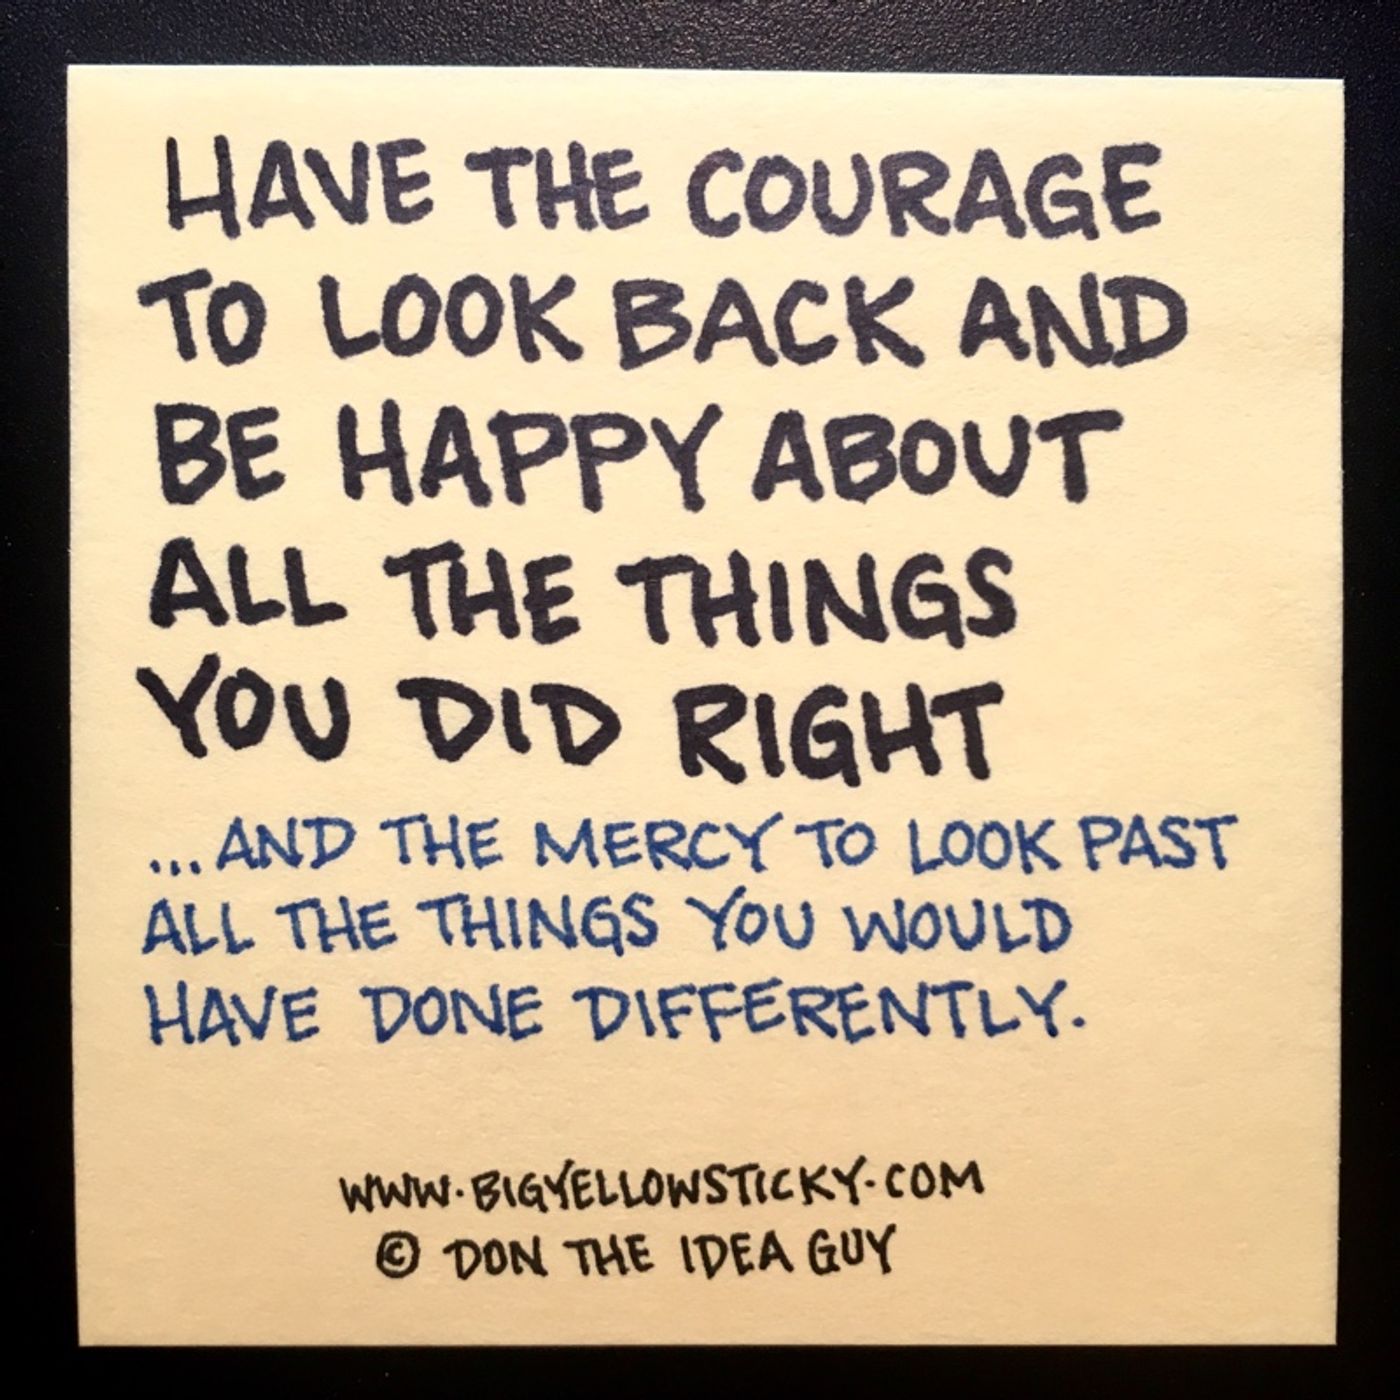 HAVE THE COURAGE
TO LOOK BACK AND
BE HAPPY ABOUT
ALL THE THINGS
YOU DID RIGHT
...AND THE MERCY TO LOOK PAST
ALL THE THINGS YOU WOULD
HAVE DONE DIFFERENTLY.
WWW.BIGYELLOWSTICKY.COM
© DON THE IDEA GUY